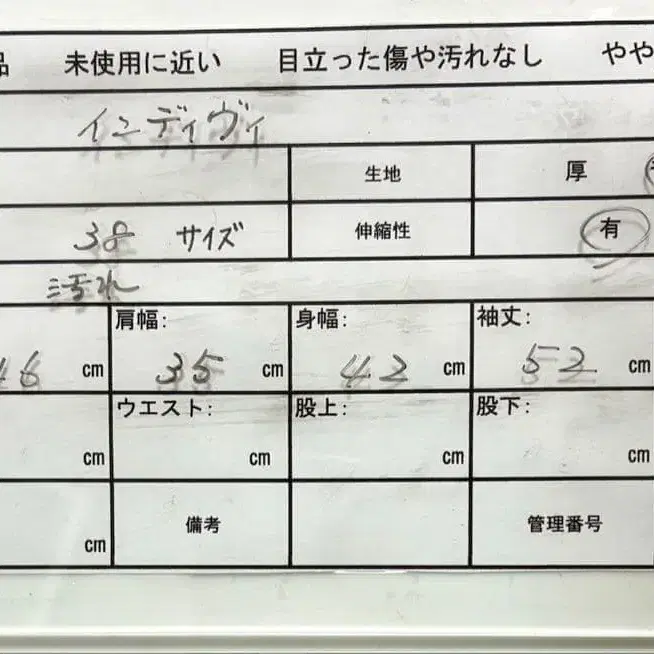 品 未使用に近い 目立った傷や汚れなし やや
インディヴィ
生地 厚
38 サイズ 伸縮性 有
汚れ
肩幅: 身幅: 袖丈:
46 cm 35 cm 42 cm 52 cm
ウエスト: 股上: 股下:
cm cm cm cm
備考 管理番号
cm